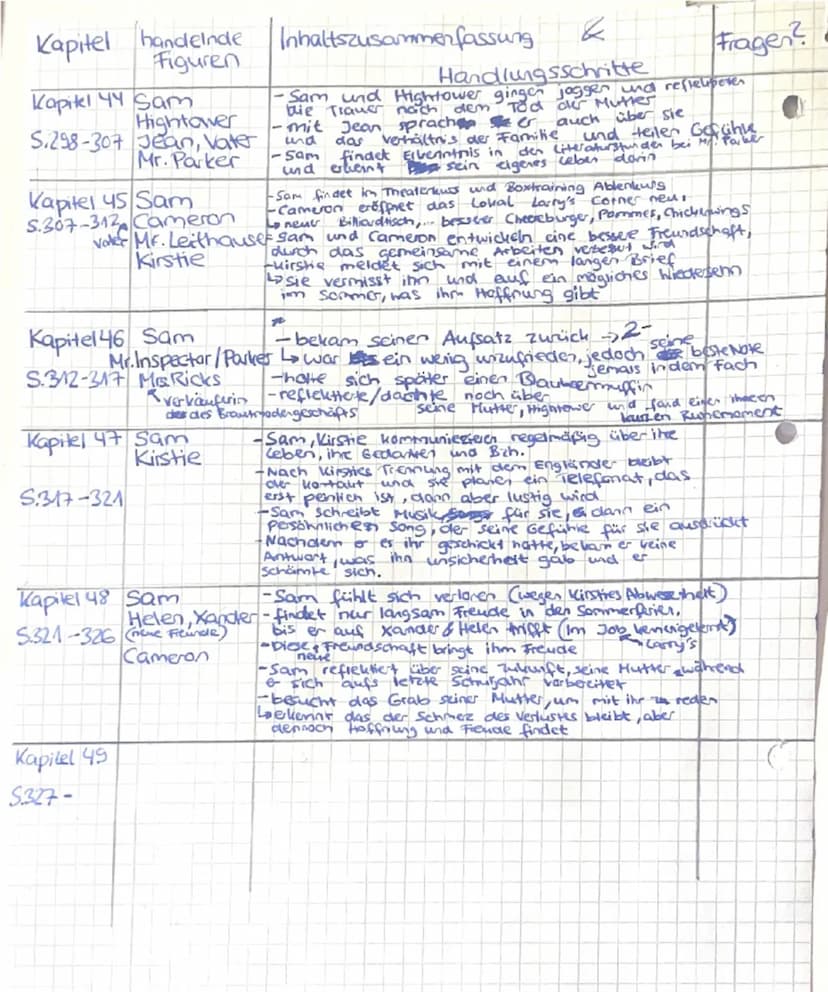 Kapitel handelnde Figuren Inhaltszusammenfassung & Handlungsschritte Fragen?
Kapitel 44
S.298-307
Sam
Hightower
Jean, Vater
Mr. Parker
- Sam und Hightower gingen joggen und reflektieren
die Trauer nach dem Tod der Mutter
- mit Jean sprach er auch über sie
und das Verhältnis der Familie und teilen Gefühle
- Sam findet Erkenntnis in den Literaturstunden bei Mr. Parker
und erkennt sein eigenes Leben darin
Kapitel 45
S.307-312
Sam
Cameron
Vater Mr. Leithauser
Kirstie
- Sam findet im Theaterkurs und Boxtraining Ablenkung
- Cameron eröffnet das Lokal Larry's Corner neu,
↳ neuer Billiardtisch,... besserer Cheeseburger, Pommes, Chickwings
- Sam und Cameron entwickeln eine bessere Freundschaft,
durch das gemeinsame Arbeiten
- Kirstie meldet sich mit einem langen Brief
↳ sie vermisst ihn und auf ein mögliches Wiedersehn
im Sommer, was ihm Hoffnung gibt
Kapitel 46
S.312-317
Sam
Mr. Inspector/Parker
Mrs Ricks
↖ Verkäuferin
des Brautmodengeschäfts
- bekam seinen Aufsatz zurück → 2-
↳ war ein wenig unzufrieden, jedoch seine beste Note
jemals in dem Fach
- holte sich später einen Blaubeermuffin
- reflektierte/dachte noch über
seine Mutter, Hightower und fand einen
kurzen Ruhemoment
Kapitel 47
S.317-321
Sam
Kirstie
- Sam, Kirstie kommunizieren regelmäßig über ihre
Leben, ihre Gedanken und Bzh.
- Nach Kirsties Trennung mit dem Engländer bleibt
der Kontakt und sie planen ein Telefonat, das
erst peinlich ist, dann aber lustig wird
- Sam schreibt Musik für sie, dann ein
persöhnlichen Song, der seine Gefühle für sie ausdrückt
- Nachdem er es ihr geschickt hatte, bekam er keine
Antwort, was ihn unsicherheit gab und er
schämte sich.
Kapitel 48
S.321-326
Sam
Helen, Xander
(neue Freunde)
Cameron
- Sam fühlt sich verloren (wegen Kirsties Abwesenheit)
- findet nur langsam Freude in den Sommerferien,
bis er auf Xander & Helen trifft (im Job kennengelernt)
Larry's
- Diese neue Freundschaft bringt ihm Freude
- Sam reflektiert über seine Zukunft, seine Mutter, während
er sich aufs letzte Schuljahr vorbereitet
- besucht das Grab seiner Mutter, um mit ihr zu reden
↳ erkennt das der Schmerz des Verlustes bleibt, aber
dennoch Hoffnung und Freude findet
Kapitel 49
S.327-